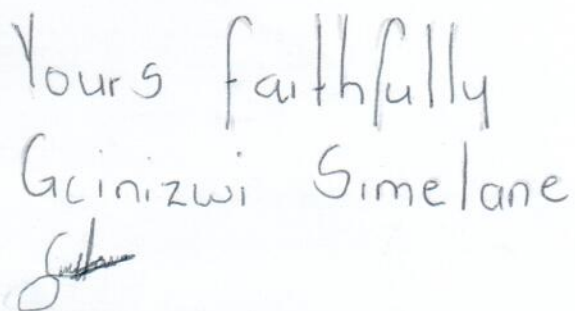 Yours faithfully
Gcinizwi Simelane